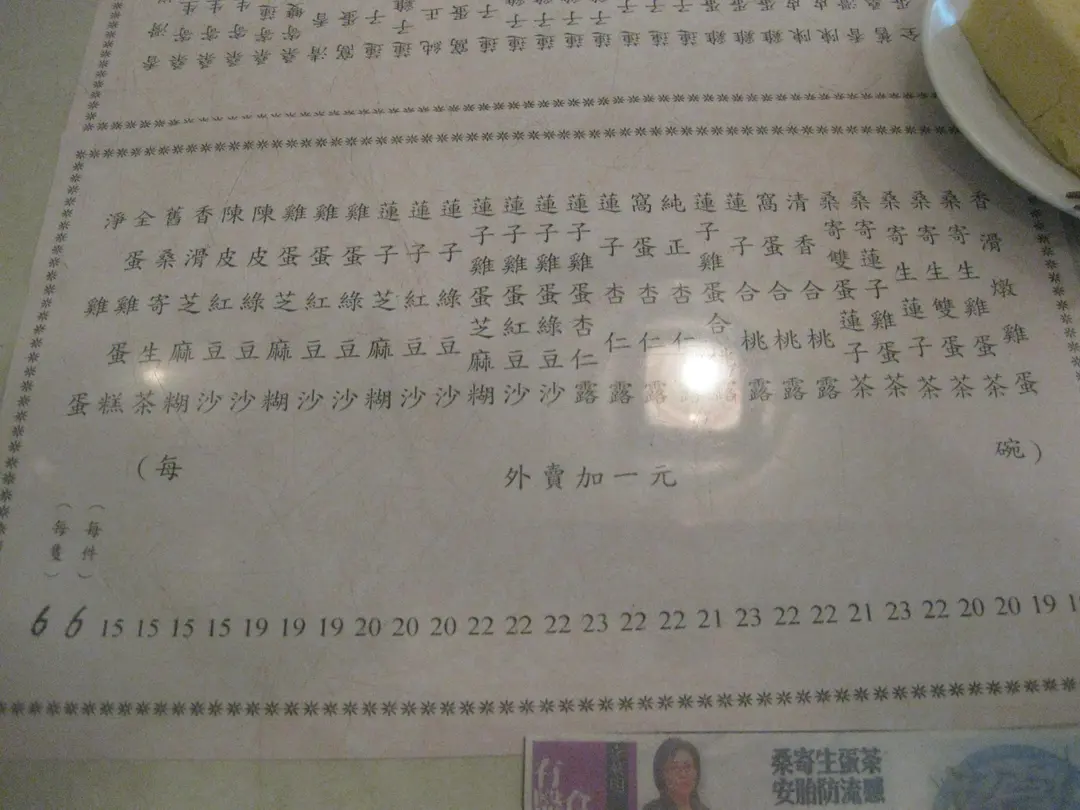 香滑燉雞蛋
桑寄生雞蛋茶
桑寄生雙蛋茶
桑寄生蓮子茶
桑寄蓮子雞蛋茶
桑寄雙蛋蓮子茶
清香合桃露
窩蛋合桃露
蓮子合桃露
蓮子雞蛋合桃露
純正杏仁露
窩蛋杏仁露
蓮子杏仁露
蓮子雞蛋杏仁露
蓮子雞蛋綠豆沙
蓮子雞蛋紅豆沙
蓮子雞蛋芝麻糊
蓮子綠豆沙
蓮子紅豆沙
蓮子芝麻糊
雞蛋綠豆沙
雞蛋紅豆沙
雞蛋芝麻糊
陳皮綠豆沙
陳皮紅豆沙
香滑芝麻糊
舊桑寄生茶
全蛋雞蛋糕
淨雞蛋
(每 碗)
外賣加一元
(每件)
(每隻)
6 6 15 15 15 15 19 19 19 20 20 20 22 22 22 23 22 22 21 23 22 22 21 23 22 20 20 19
桑寄生蛋茶
安胎防流感